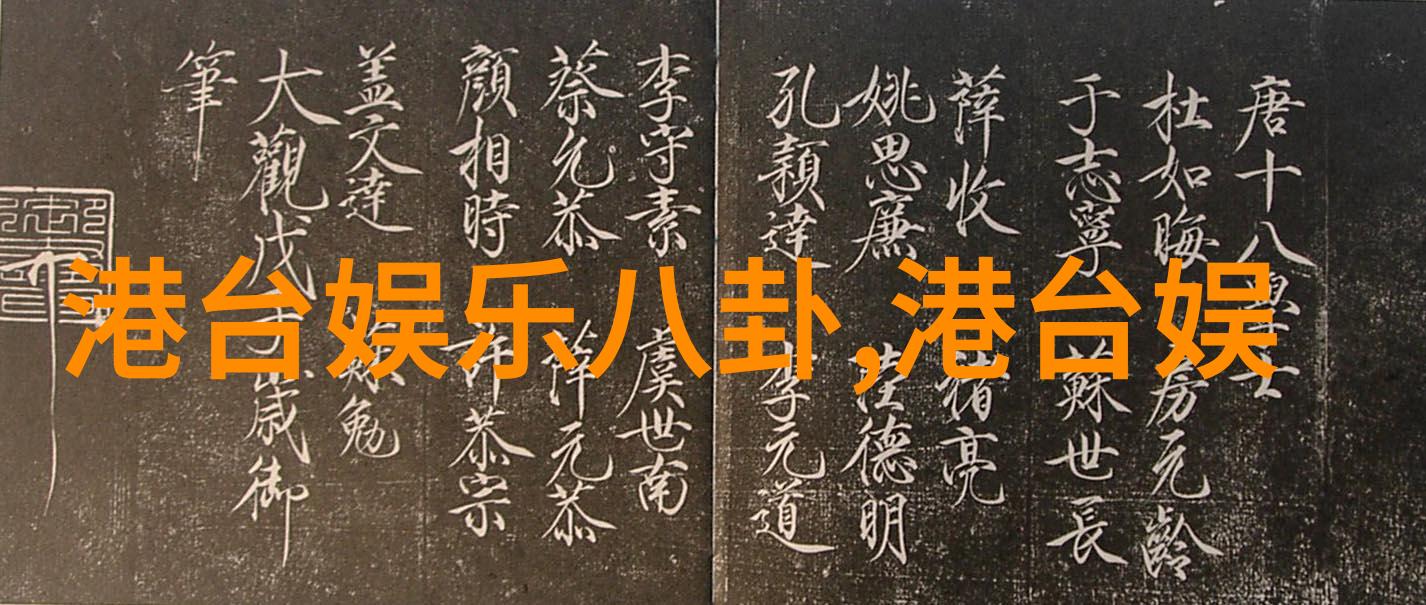 唐十八學士
杜如晦 房元齡
于志寧 蘇世長
薛收 褚亮
姚思廉 陸德明
孔穎達 李元道
李守素 虞世南
蔡允恭 薛元恭
顏相時 許恭宗
盖文達 蘇勉
大觀戊子歲御
筆
港台娱乐八卦,港台娱